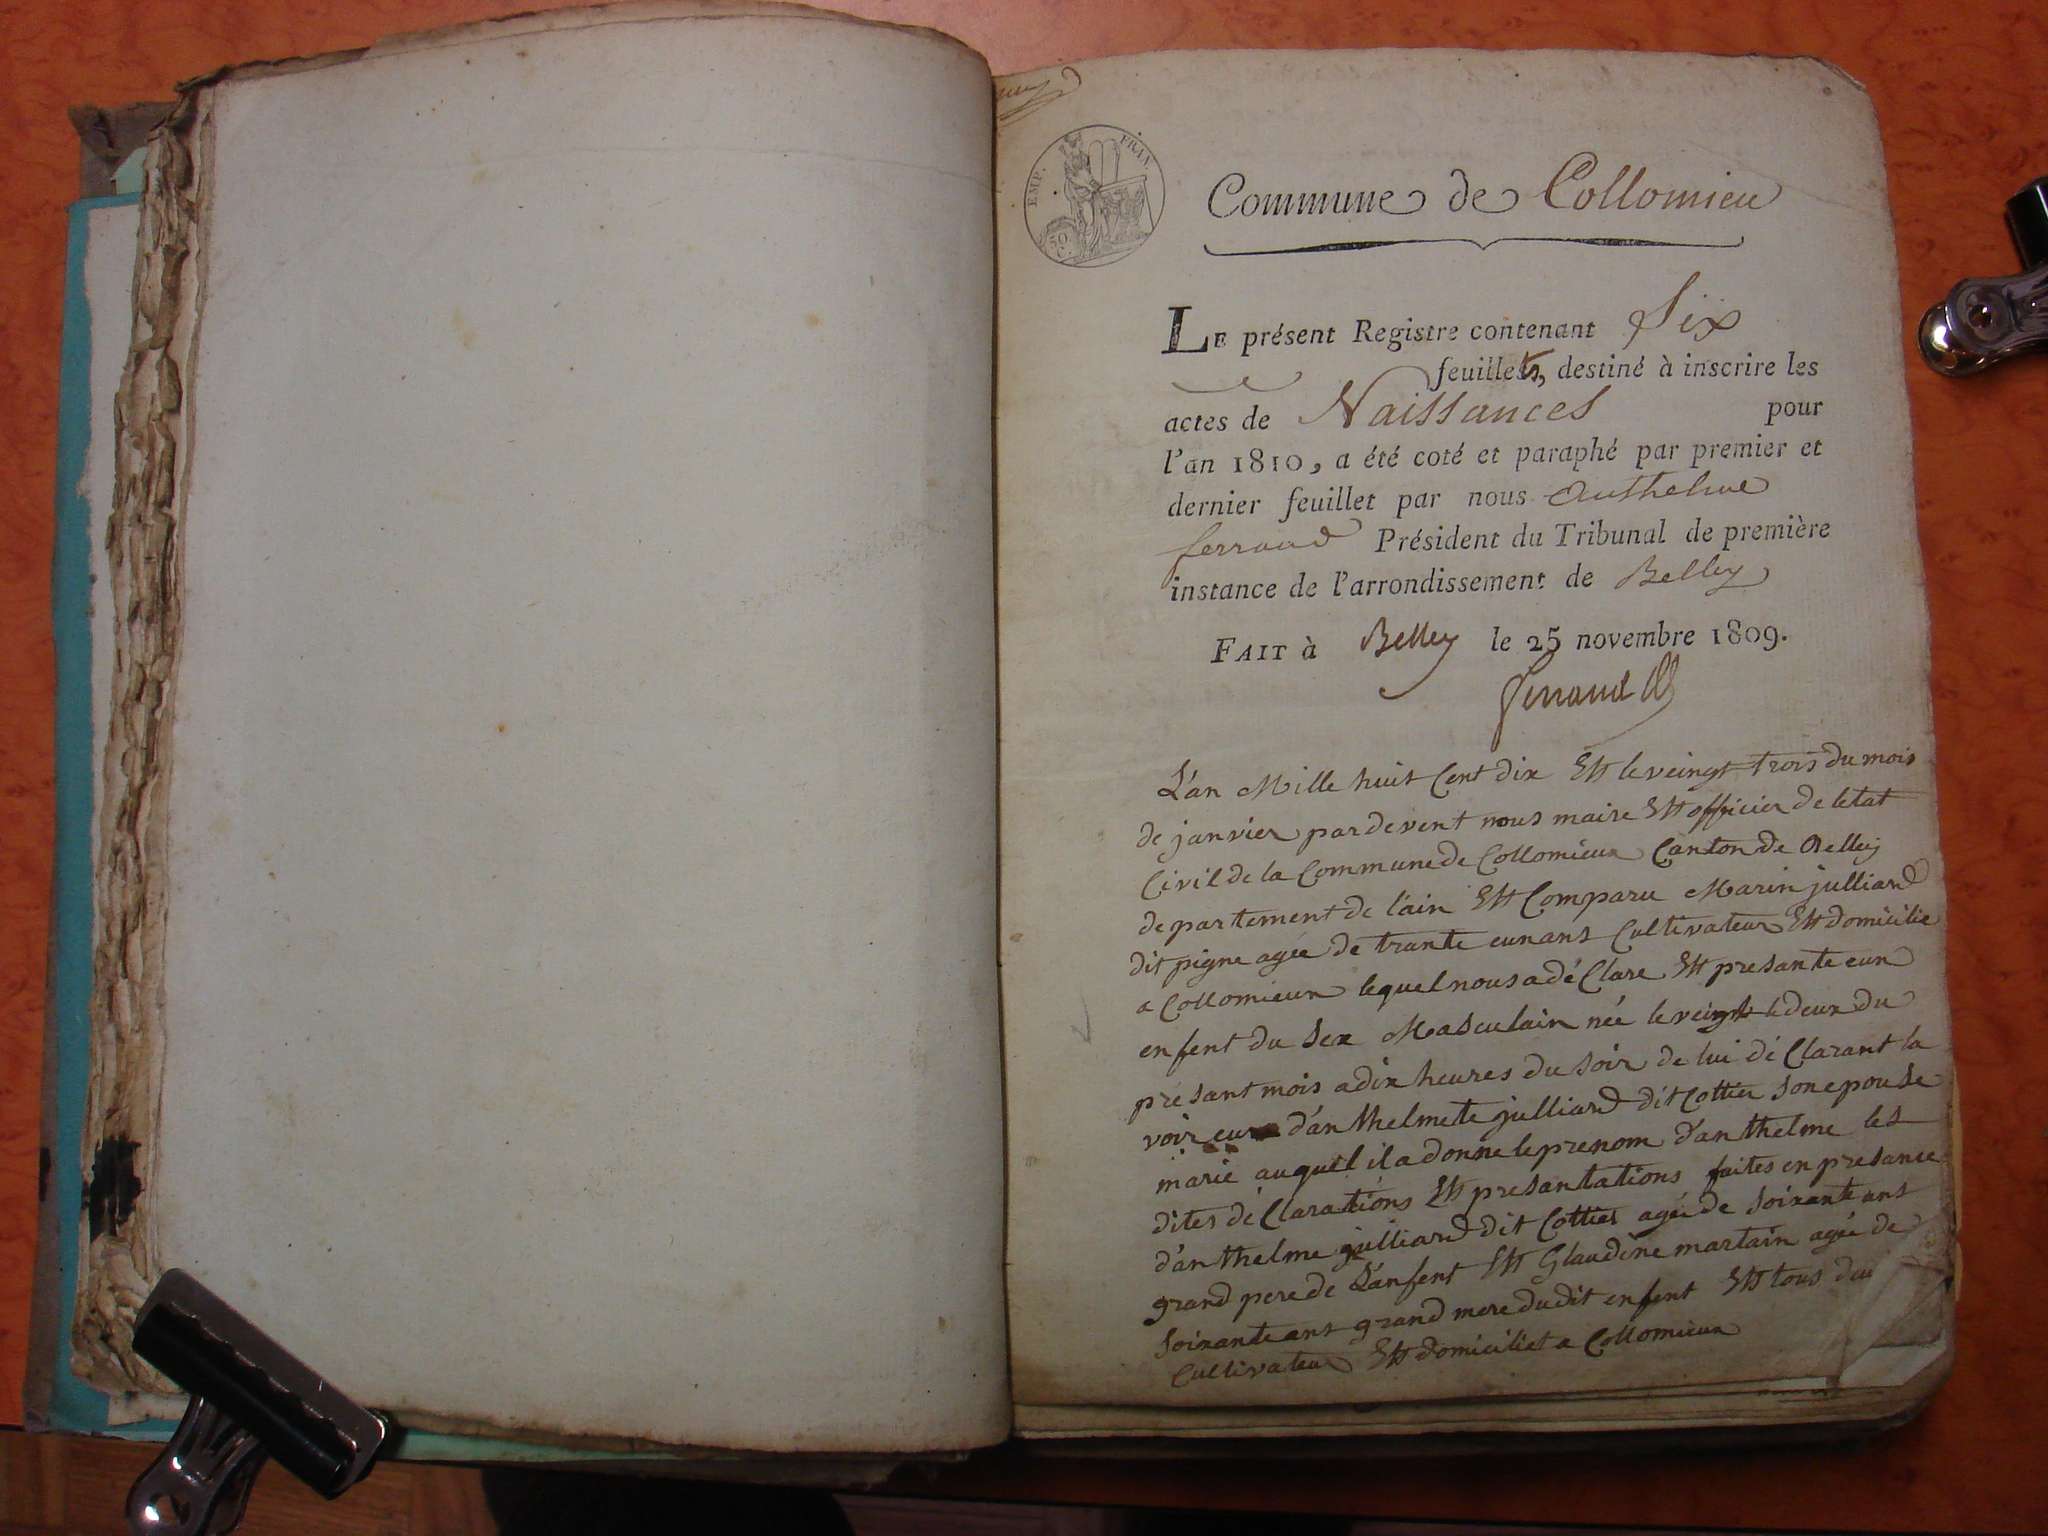 EMP. FRAN.
50 C.
Commune de Collomieu
LE présent Registre contenant Six
feuillets, destiné à inscrire les
actes de Naissances pour
l'an 1810, a été coté et paraphé par premier et
dernier feuillet par nous Anthelme
ferrand Président du Tribunal de première
instance de l'arrondissement de Belley
FAIT à Belley le 25 novembre 1809.
ferrand
L'an Mille huit Cent dix Ett le veingt trois du mois
de janvier par devent nous maire Ett officier de letat
Civil de la Commune de Collomieux Canton de Belley
departement de l'ain Ett Comparu Marin julliard
dit pigne agée de trante eun ans Cultivateur Ett domicilie
a Collomieux lequel nous a déClare Ett presante eun
enfent du Sex Masculain née le veingt deux du
présant mois a dix heures du Soir de lui déClarant la
voir eur d'anthelmete julliard dit Cottier Son epouse
marie auquel il a donne le prenom d'anthelme les
dites déClarations Ett presantations faites en presance
d'anthelme julliard dit Cottier agée de Soixante ans
grand pere de L'anfent Ett Glaudine martain agée de
Soixante ans grand mere dudit enfent Ett tous du
Cultivateur Ett domiciliet a Collomieux